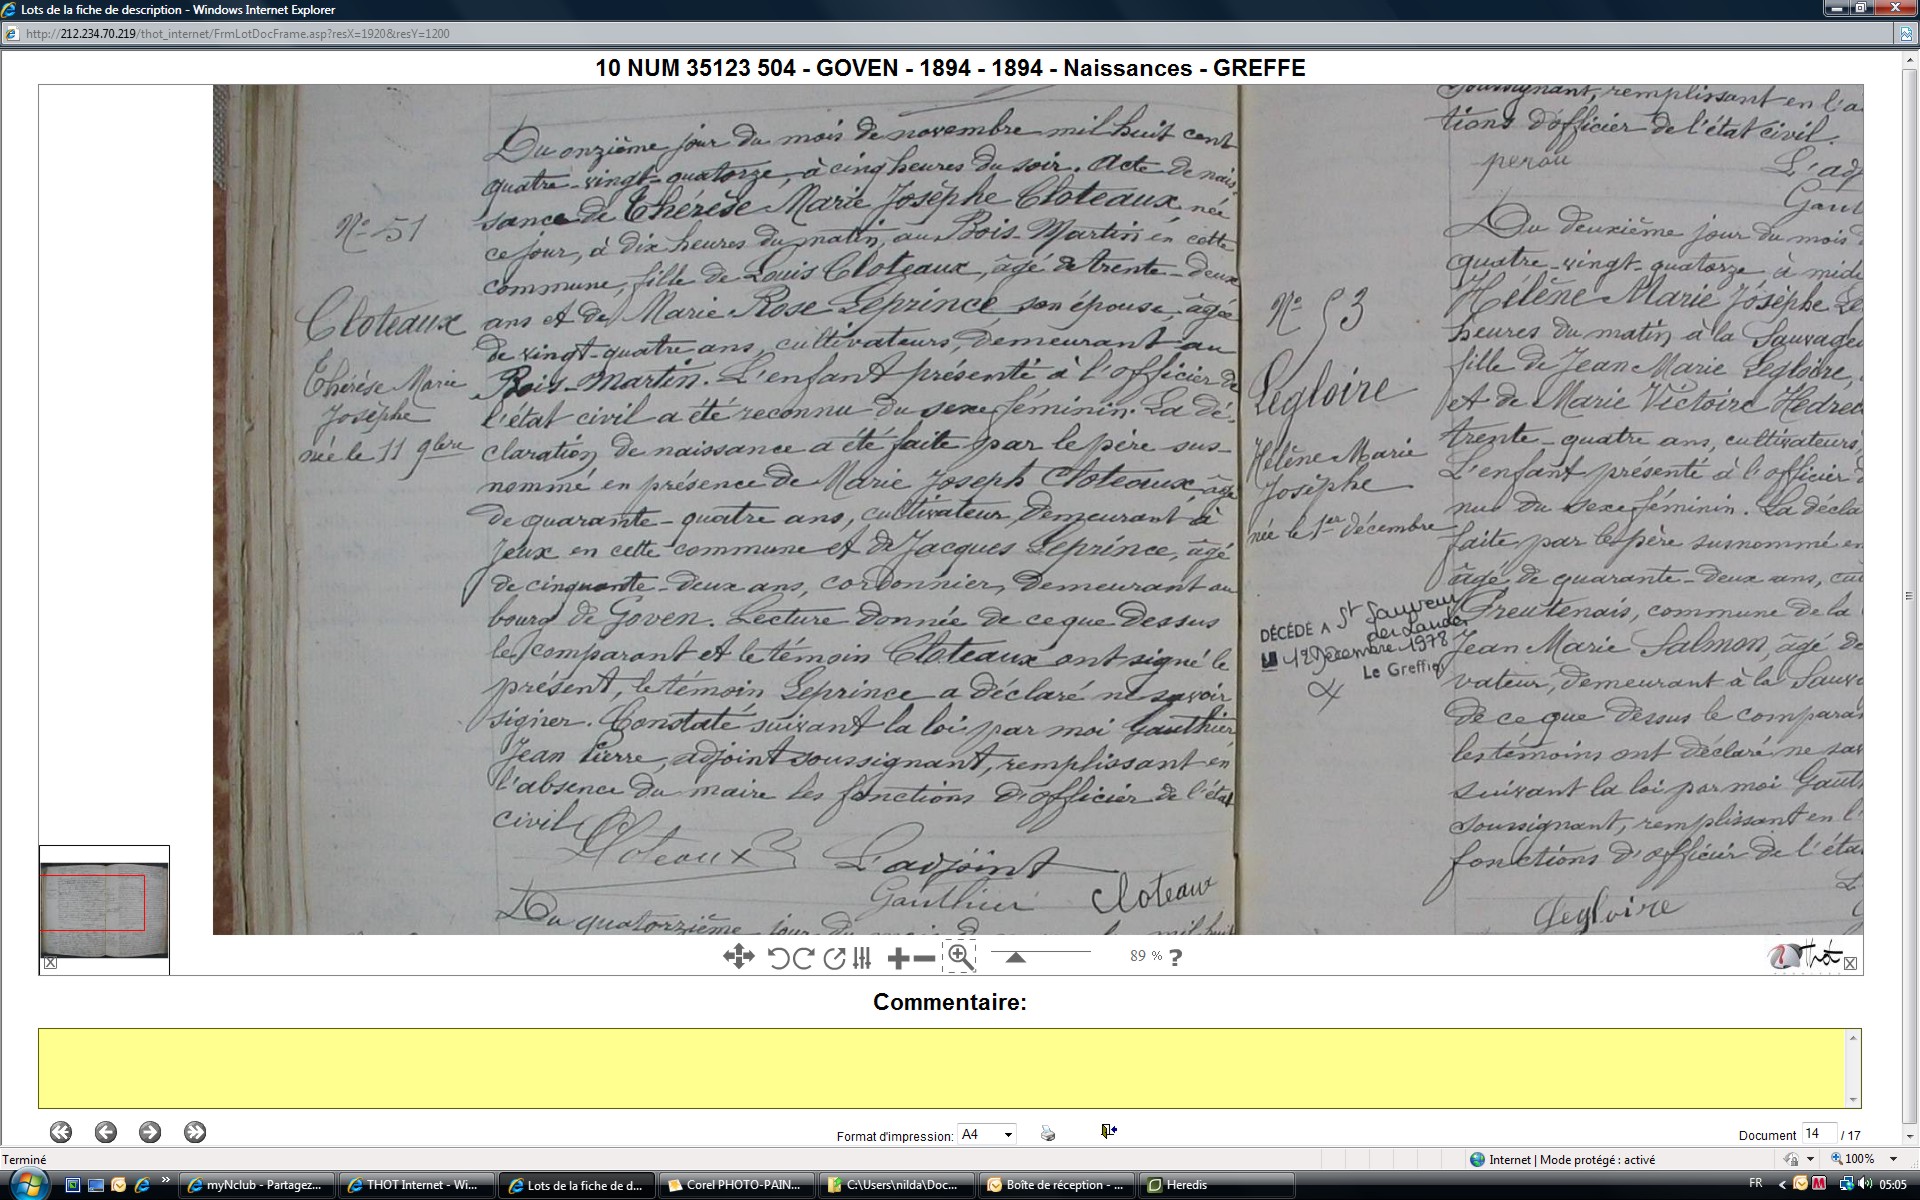 Lots de la fiche de description - Windows Internet Explorer
http://212.234.70.219/thot_internet/FrmLotDocFrame.asp?resX=1920&resY=1200
10 NUM 35123 504 - GOVEN - 1894 - 1894 - Naissances - GREFFE
N° 51
Cloteaux
Thérèse Marie
Josèphe
née le 11 9bre
Du onzième jour du mois de novembre mil huit cent
quatre-vingt-quatorze, à cinq heures du soir. Acte de nais-
sance de Thérèse Marie Josèphe Cloteaux, née
ce jour, à dix heures du matin, au Bois-Martin en cette
commune, fille de Louis Cloteaux, âgé de trente-deux
ans et de Marie Rose Leprince, son épouse, âgée
de vingt-quatre ans, cultivateurs, demeurant au
Bois-Martin. L'enfant présenté à l'officier de
l'état civil a été reconnu du sexe féminin. La dé-
claration de naissance a été faite par le père sus-
nommé en présence de Marie Joseph Cloteaux, âgé
de quarante-quatre ans, cultivateur, demeurant à
Jeux en cette commune et de Jacques Leprince, âgé
de cinquante-deux ans, cordonnier, demeurant au
bourg de Goven. Lecture donnée de ce que dessus
le comparant et le témoin Cloteaux ont signé le
présent, le témoin Leprince a déclaré ne savoir
signer. Constaté suivant la loi par moi Gauthier
Jean Pierre, adjoint soussignant, remplissant en
l'absence du maire les fonctions d'officier de l'état
civil.
Cloteaux
L'adjoint
Gauthier
Cloteaux
Du quatorzième jour du mois de mil huit
soussignant, remplissant en l'a
tions d'officier de l'état civil.
perou
L'adj
Gaut
N° 53
Legloire
Hélène Marie
Josèphe
née le 1er décembre
DÉCÉDÉ A St Sauveur
des Landes
LE 12 Décembre 1978
Le Greffier
Du deuxième jour du mois d
quatre-vingt-quatorze à midi
Hélène Marie Josèphe Le
heures du matin à la Sauvage
fille de Jean Marie Legloire,
et de Marie Victoire Hedre
trente-quatre ans, cultivateurs,
L'enfant présenté à l'officier d
nu du sexe féminin. La décla
faite par le père susnommé en
âgé de quarante-deux ans, cul
Greutenais, commune de la
Jean Marie Salmon, âgé de
vateur, demeurant à la Sauv
de ce que dessus le compara
les témoins ont déclaré ne sav
suivant la loi par moi Gaut
soussignant, remplissant en l'
fonctions d'officier de l'éta
Legloire
89 %
?
Thot
Commentaire:
Format d'impression: A4
Document 14 / 17
Terminé
Internet | Mode protégé : activé
100%
myNclub - Partagez...
THOT Internet - Wi...
Lots de la fiche de d...
Corel PHOTO-PAIN...
C:\Users\nilda\Doc...
Boîte de réception - ...
Heredis
FR
05:05